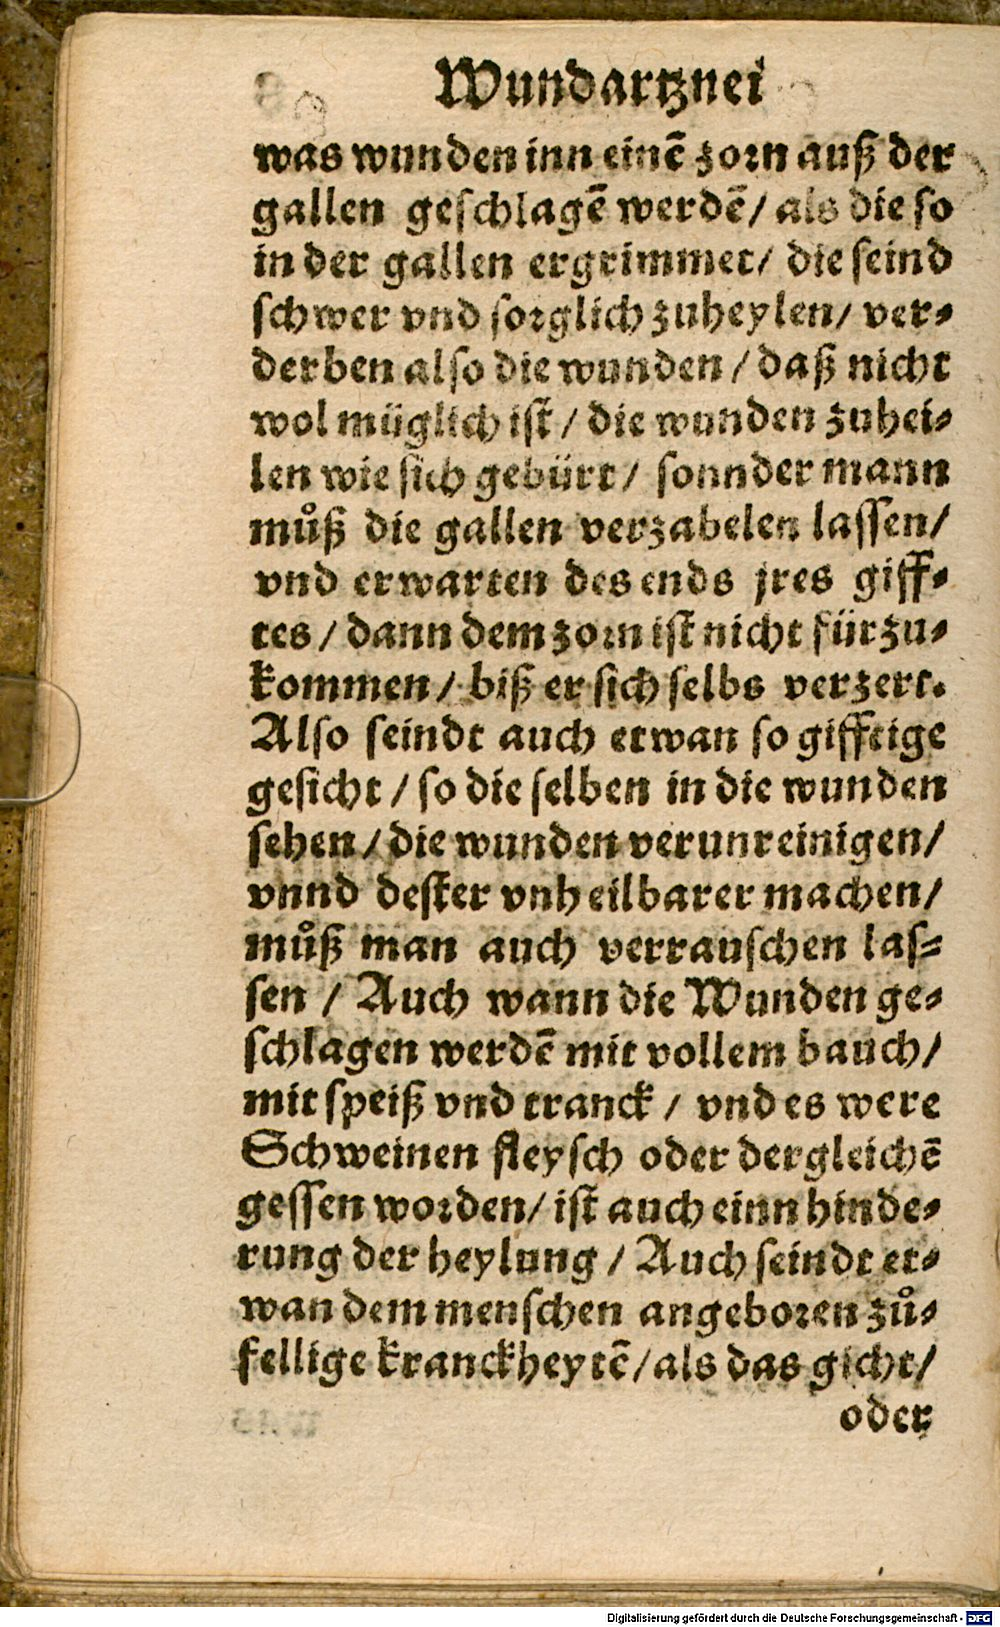 Wundartznei
was wunden inn einē zorn auß der
gallen geschlagē werdē/ als die so
in der gallen ergrimmet/ die seind
schwer vnd sorglich zuheylen/ ver-
derben also die wunden / daß nicht
wol müglich ist / die wunden zuhei-
len wie sich gebürt / sonnder mann
můß die gallen verzabelen lassen/
vnd erwarten des ends jres giff-
tes / dann dem zorn ist nicht fürzu-
kommen / biß er sich selbs verzert.
Also seindt auch etwan so gifftige
gesicht / so die selben in die wunden
sehen / die wunden verunreinigen/
vnnd dester vnheilbarer machen/
můß man auch verrauschen las-
sen / Auch wann die Wunden ge-
schlagen werdē mit vollem bauch/
mit speiß vnd tranck / vnd es were
Schweinen fleysch oder dergleichē
gessen worden/ ist auch einn hinde-
rung der heylung / Auch seindt et-
wan dem menschen angeboren zů-
fellige kranckheytē/ als das gicht/
oder
Digitalisierung gefördert durch die Deutsche Forschungsgemeinschaft - DFG